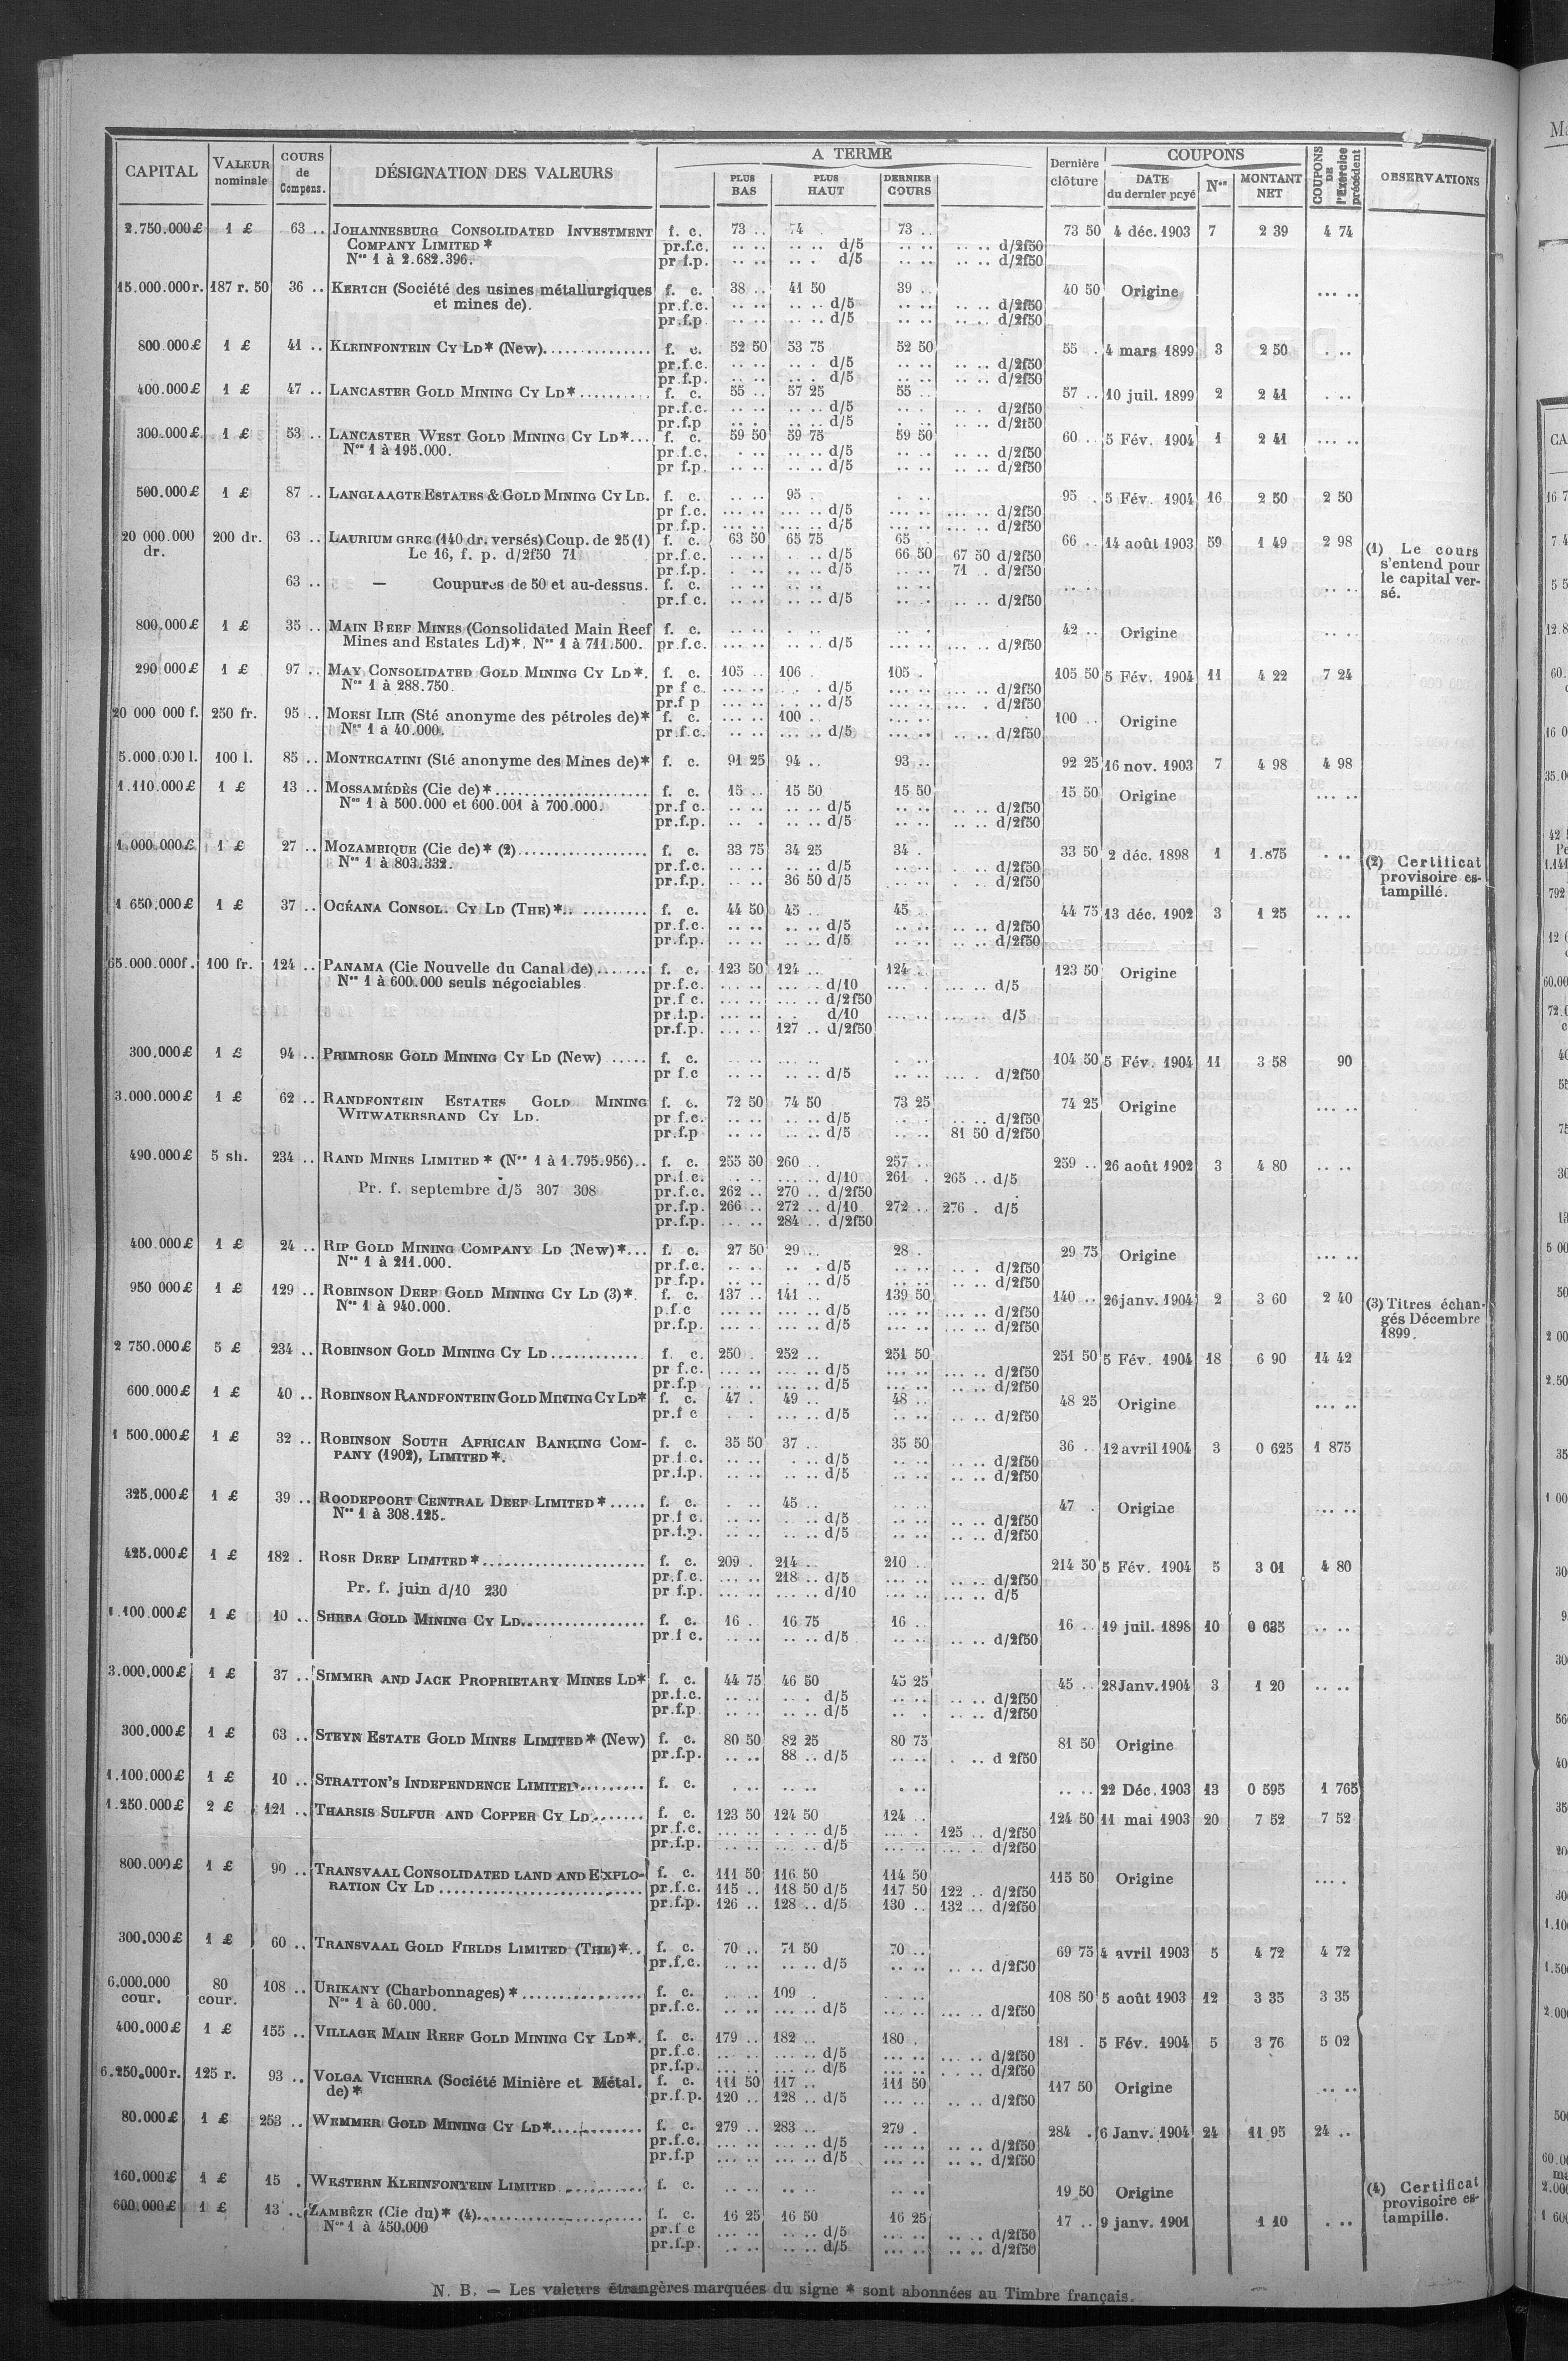 A TERME
COUPONS
CAPITAL VALEUR nominale COURS de Compens. DÉSIGNATION DES VALEURS PLUS BAS PLUS HAUT DERNIER COURS Dernière clôture DATE du dernier payé Nos MONTANT NET COUPONS DE l'Exercice précédent OBSERVATIONS
2.750.000£ 1 £ 63 .. JOHANNESBURG CONSOLIDATED INVESTMENT f. c. 73 .. 74 73 .. 73 50 4 déc. 1903 7 2 39 4 74
COMPANY LIMITED * pr.f.c. .. .. .. .. d/5 .. .. .. .. d/2f50
Nos 1 à 2.682.396. pr f.p. .. .. .. . d/5 .. .. .. .. d/2f50
15.000.000r. 187 r. 50 36 .. KERTCH (Société des usines métallurgiques f. c. 38 .. 41 50 39 .. 40 50 Origine ... ..
et mines de). pr.f.c. .. .. .. .. d/5 .. .. .. .. d/2f50
pr.f.p .. .. .. .. d/5 .. .. .. .. d/2f50
800.000£ 1 £ 41 .. KLEINFONTEIN CY LD* (New)............... f. c. 52 50 53 75 52 50 55 . 4 mars 1899 3 2 50 . ..
pr.f.c. .. .. .. . d/5 .. .. .. .. d/2f50
pr.f.p. .. .. .. . d/5 .. .. .. .. d/2f50
400.000£ 1 £ 47 .. LANCASTER GOLD MINING CY LD*.......... f. c. 55 .. 57 25 55 .. 57 .. 10 juil. 1899 2 2 41 . ..
pr.f.c. .. .. .. .. d/5 .. . .. . d/2f50
pr.f.p .. . .. .. d/5 . .. .. . d/2f50
300.000£ 1 £ 53 .. LANCASTER WEST GOLD MINING CY LD*... f. c. 59 50 59 75 59 50 60 .. 5 Fév. 1904 1 2 41 ... ..
Nos 1 à 195.000. pr.f.c. . .. .. .. d/5 .. .. .. .. d/2f50
pr f.p. .. .. .. .. d/5 .. .. .. .. d/2f50
500.000£ 1 £ 87 .. LANGLAAGTE ESTATES & GOLD MINING CY LD. f. c. .. .. 95 . . .. 95 . 5 Fév. 1904 16 2 50 2 50
pr f.c. ... .. ... .. d/5 ... .. ... .. d/2f50
pr f.p. ... .. ... .. d/5 ... .. ... .. d/2f50
20 000.000 dr. 200 dr. 63 .. LAURIUM GREC (140 dr. versés) Coup. de 25 (1) f. c. 63 50 65 75 65 . 66 .. 14 août 1903 59 1 49 2 98 (1) Le cours s'entend pour le capital versé.
Le 16, f. p. d/2f50 71 pr.f.c. .. .. . .. d/5 66 50 67 50 d/2f50
pr.f.p. . .. .. .. d/5 .. .. 71 .. d/2f50
63 .. — Coupures de 50 et au-dessus. f. c. .. .. .. .. .. .. .. .. .. ..
pr.f c. .. .. .. .. d/5 .. .. .. .. d/2f50
800.000£ 1 £ 35 .. MAIN REEF MINES (Consolidated Main Reef f. c. .. .. . .. .. . 42 .. Origine .. ..
Mines and Estates Ld)*. Nos 1 à 711.500. pr.f.c. ... .. .. .. d/5 ... .. ... .. d/2f50
290 000£ 1 £ 97 .. MAY CONSOLIDATED GOLD MINING CY LD*. f. c. 105 .. 106 . 105 . 105 50 5 Fév. 1904 11 4 22 7 24
Nos 1 à 288.750. pr f c. ... .. . . . d/5 ... .. ... .. d/2f50
pr.f p ... .. .. . d/5 ... .. ... . d/2f50
20 000 000 f. 250 fr. 95 .. MORSI ILIR (Sté anonyme des pétroles de)* f. c. ... .. 100 . ... .. 100 .. Origine
Nos 1 à 40.000. pr.f.c. .. .. ... .. d/5 ... .. .. .. d/2f50
5.000.000 l. 100 l. 85 .. MONTECATINI (Sté anonyme des Mines de)* f. c. 91 25 94 .. 93 .. 92 25 16 nov. 1903 7 4 98 4 98
1.110.000£ 1 £ 13 .. MOSSAMÉDÈS (Cie de)*.................... f. c. 15 .. 15 50 15 50 15 50 Origine ... ..
Nos 1 à 500.000 et 600.001 à 700.000. pr.f c. .. .. .. .. d/5 .. .. .. .. d/2f50
pr.f.p. .. . .. .. d/5 .. .. .. .. d/2f50
1.000.000£ 1 £ 27 .. MOZAMBIQUE (Cie de)* (2)................. f. c. 33 75 34 25 34 . 33 50 2 déc. 1898 1 1.875 . .. (2) Certificat provisoire estampillé.
Nos 1 à 803.332. pr.f.c. .. .. .. .. d/5 .. .. . .. d/2f50
pr.f.p. .. .. 36 50 d/5 .. .. . . d/2f50
1 650.000£ 1 £ 37 .. OCÉANA CONSOL. CY LD (THE)*.. ......... f. c. 44 50 45 .. 45 . 44 75 13 déc. 1902 3 1 25 .. ..
pr.f.c. .. .. .. .. d/5 .. .. .. .. d/2f50
pr.f.p. .. .. .. .. d/5 .. .. .. .. d/2f50
65.000.000f. 100 fr. 124 .. PANAMA (Cie Nouvelle du Canal de)....... f. c. 123 50 124 .. 124 . 123 50 Origine
Nos 1 à 600.000 seuls négociables pr.f.c. ... .. ... .. d/10 ... . ... .. d/5
pr.f c. ... .. ... .. d/2f50
pr.f.p. ... .. . . d/10 ... .. ... .. d/5
pr.f.p. ... .. 127 .. d/2f50
300.000£ 1 £ 94 .. PRIMROSE GOLD MINING CY LD (New) ..... f. c. .. .. ... .. . .. 104 50 5 Fév. 1904 11 3 58 90
pr f.c .. .. .. .. d/5 .. .. ... . d/2f50
3.000.000£ 1 £ 62 .. RANDFONTEIN ESTATES GOLD MINING f. c. 72 50 74 50 73 25 74 25 Origine ... ..
WITWATERSRAND CY LD. pr f.c. .. .. ... .. d/5 . . .. .. d/2f50
pr.f.p .. .. ... .. d/5 .. .. 81 50 d/2f50
490.000£ 5 sh. 234 .. RAND MINES LIMITED * (Nos 1 à 1.795.956).. f. c. 255 50 260 .. 257 .. 259 .. 26 août 1902 3 4 80 .. ..
pr.f.c. .. .. ... .. d/10 261 . 265 .. d/5
Pr. f. septembre d/5 307 308 pr.f.c. 262 .. 270 .. d/2f50
pr.f.p. 266 .. 272 .. d/10 272 .. 276 . d/5
pr.f.p. ... .. 284 .. d/2f50
400.000£ 1 £ 24 .. RIP GOLD MINING COMPANY LD (New)*... f. c. 27 50 29 .. 28 . 29 75 Origine ... ..
Nos 1 à 211.000. pr.f.c. .. .. .. . d/5 .. .. .. . d/2f50
pr f.p. .. .. .. . d/5 .. .. .. .. d/2f50
950 000£ 1 £ 129 .. ROBINSON DEEP GOLD MINING CY LD (3)*. f. c. 137 .. 141 .. 139 50 140 .. 26 janv. 1904 2 3 60 2 40 (3) Titres échangés Décembre 1899.
Nos 1 à 940.000. p.f.c ... .. ... .. d/5 ... .. ... .. d/2f50
pr.f.p. ... .. ... .. d/5 ... .. ... .. d/2f50
2 750.000£ 5 £ 234 .. ROBINSON GOLD MINING CY LD............ f. c. 250 . 252 .. 251 50 251 50 5 Fév. 1904 18 6 90 14 42
pr f.c. ... .. ... .. d/5 ... .. ... .. d/2f50
pr.f.p ... .. ... .. d/5 ... .. .. .. d/2f50
600.000£ 1 £ 40 .. ROBINSON RANDFONTEIN GOLD MINING CY LD* f. c. 47 . 49 .. 48 .. 48 25 Origine ... ..
pr.f c . . ... .. d/5 .. .. .. .. d/2f50
1 500.000£ 1 £ 32 .. ROBINSON SOUTH AFRICAN BANKING COM- f. c. 35 50 37 .. 35 50 36 .. 12 avril 1904 3 0 625 1 875
PANY (1902), LIMITED *. pr.f.c. .. .. . .. d/5 .. .. .. .. d/2f50
pr.f.p. .. .. . .. d/5 .. .. .. .. d/2f50
325.000£ 1 £ 39 .. ROODEPOORT CENTRAL DEEP LIMITED *..... f. c. . .. 45 .. .. .. 47 . Origine ... ..
Nos 1 à 308.125. pr.f c. .. .. . .. d/5 .. .. .. .. d/2f50
pr.f.p. .. .. . .. d/5 .. .. .. .. d/2f50
425.000£ 1 £ 182 . ROSE DEEP LIMITED *...................... f. c. 209 . 214 .. 210 .. 214 50 5 Fév. 1904 5 3 01 4 80
pr.f.c. ... .. 218 .. d/5 ... .. .. .. d/2f50
Pr. f. juin d/10 230 pr f.p. ... .. ... .. d/10 ... .. ... .. d/5
1.100.000£ 1 £ 10 .. SHEBA GOLD MINING CY LD................. f. c. 16 .. 16 75 16 .. 16 .. 19 juil. 1898 10 0 625 .. ..
pr.f c. .. .. .. .. d/5 .. .. .. .. d/2f50
3.000.000£ 1 £ 37 .. SIMMER AND JACK PROPRIETARY MINES LD* f. c. 44 75 46 50 45 25 45 .. 28 Janv. 1904 3 1 20 .. ..
pr.f.c. .. .. .. . d/5 .. .. .. .. d/2f50
pr.f.p .. .. .. . d/5 .. . .. .. d/2f50
300.000£ 1 £ 63 .. STEYN ESTATE GOLD MINES LIMITED * (New) f. c. 80 50 82 25 80 75 81 50 Origine
pr.f.p. .. .. 88 .. d/5 .. .. . .. d 2f50
1.100.000£ 1 £ 10 .. STRATTON'S INDEPENDENCE LIMITED......... f. c. . .. .. .. . .. .. .. 22 Déc. 1903 13 0 595 1 765
1.250.000£ 2 £ 121 .. THARSIS SULFUR AND COPPER CY LD....... f. c. 123 50 124 50 124 .. 124 50 11 mai 1903 20 7 52 7 52
pr f.c. ... .. . .. .. d/5 ... . 125 .. d/2f50
pr.f.p. ... .. ... .. d/5 ... .. ... .. d/2f50
800.000£ 1 £ 90 .. TRANSVAAL CONSOLIDATED LAND AND EXPLO- f. c. 111 50 116 50 114 50 115 50 Origine ... .
RATION CY LD............................ pr.f.c. 115 .. 118 50 d/5 117 50 122 .. d/2f50
pr.f.p. 126 .. 128 .. d/5 130 .. 132 .. d/2f50
300.000£ 1 £ 60 .. TRANSVAAL GOLD FIELDS LIMITED (THE)*.. f. c. 70 .. 71 50 70 .. 69 75 4 avril 1903 5 4 72 4 72
pr.f.c. .. .. .. .. d/5 .. .. .. .. d/2f50
6.000.000 cour. 80 cour. 108 .. URIKANY (Charbonnages) *................ f. c. .. .. 109 . .. .. 108 50 5 août 1903 12 3 35 3 35
Nos 1 à 60.000. pr.f.c. .. .. ... .. d/5 ... .. ... .. d/2f50
400.000£ 1 £ 155 .. VILLAGE MAIN REEF GOLD MINING CY LD*. f. c. 179 .. 182 .. 180 . 181 . 5 Fév. 1904 5 3 76 5 02
pr.f.c. .. .. ... .. d/5 ... .. ... .. d/2f50
pr.f.p. ... .. ... .. d/5 ... .. ... .. d/2f50
6.250.000r. 125 r. 93 .. VOLGA VICHERA (Société Minière et Métal. f. c. 111 50 117 .. 111 50 117 50 Origine .. ..
de)* pr.f.p. 120 .. 128 .. d/5 ... .. .. .. d/2f50
80.000£ 1 £ 253 .. WEMMER GOLD MINING CY LD*............ f. c. 279 .. 283 .. 279 . 284 . 6 Janv. 1904 24 11 95 24 ..
pr.f.c. ... .. ... .. d/5 ... .. .. .. d/2f50
pr.f.p ... .. ... .. d/5 ... .. .. .. d/2f50
160.000£ 1 £ 15 . WESTERN KLEINFONTEIN LIMITED........... f. c. .. .. .. .. .. .. 19 50 Origine
600.000£ 1 £ 13 .. ZAMBÈZE (Cie du)* (4)...................... f. c. 16 25 16 50 16 25 17 .. 9 janv. 1901 1 10 . .. (4) Certificat provisoire estampille.
Nos 1 à 450.000 pr.f c ... .. .. .. d/5 ... .. .. .. d/2f50
pr.f.p .. .. .. .. d/5 ... .. .. .. d/2f50
N. B. — Les valeurs étrangères marquées du signe * sont abonnées au Timbre français.